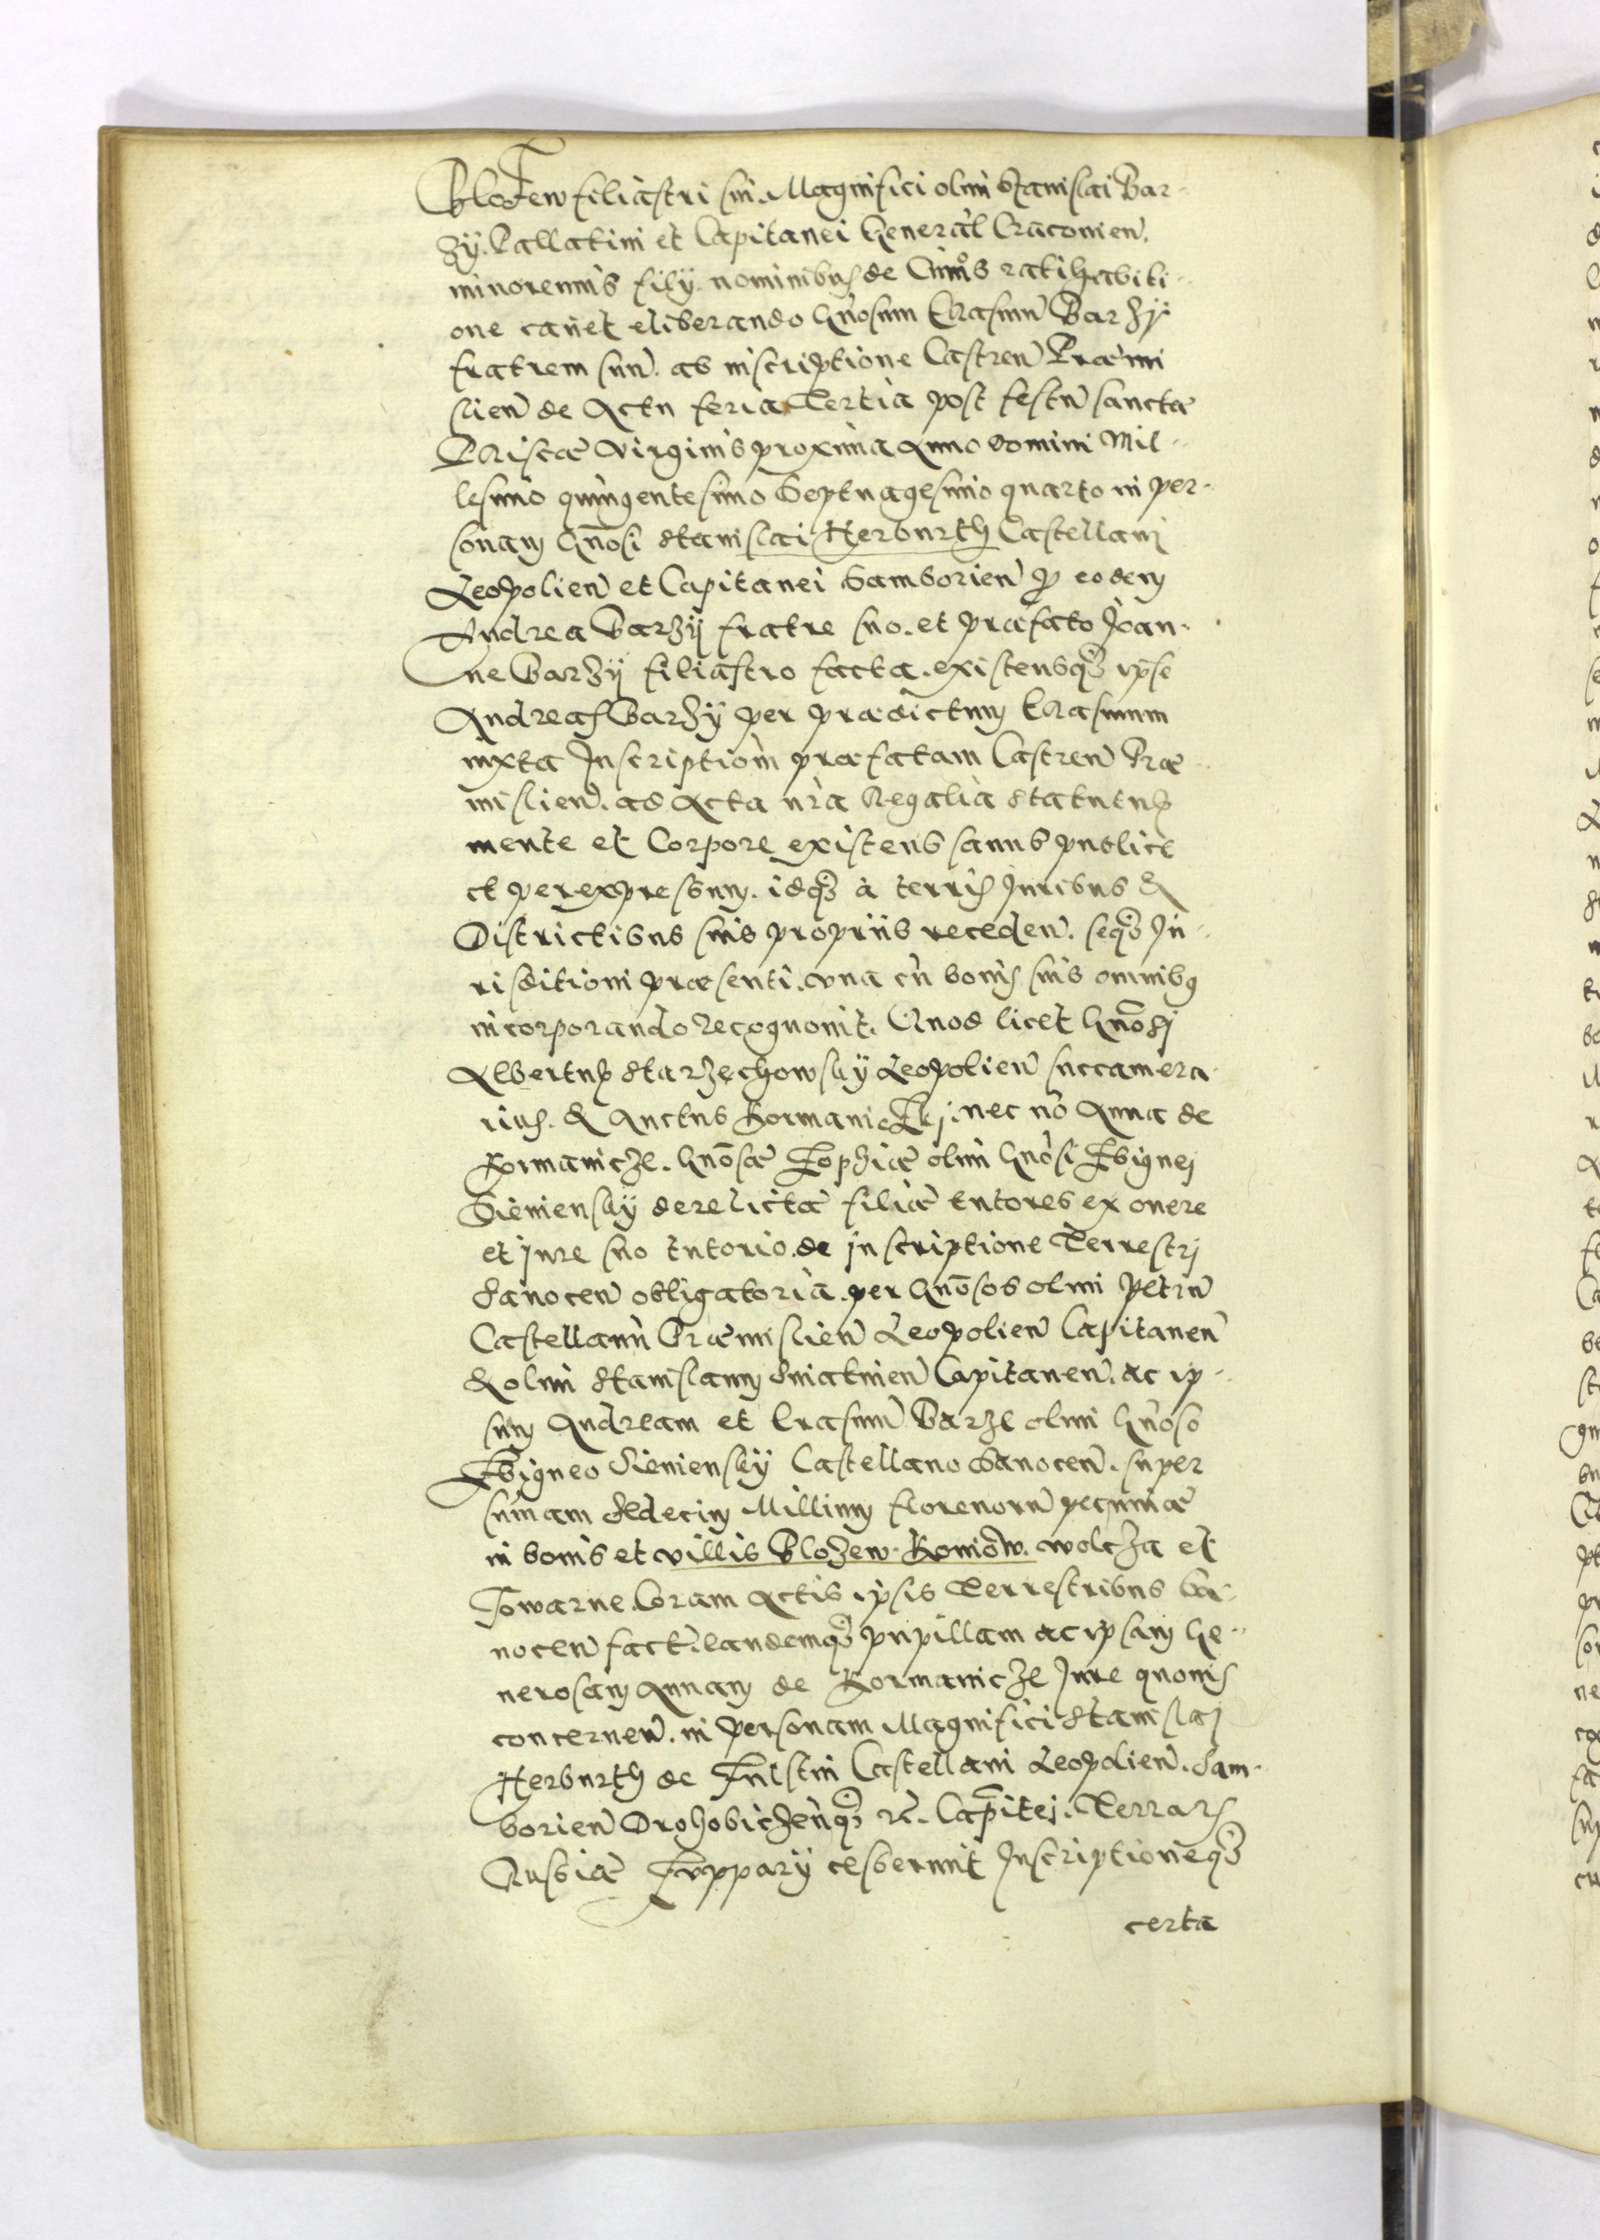 Blozew filiastri sui. Magnifici olim Stanislai Bar-
zÿ. Pallatini et Capitanei General Cracovien.
minorennis filÿ. nominibus de ratihabiti-
one cavet eliberando Gnosum Erasmum Barzÿ
fratrem suum. ab inscriptione Castren Præmi
slien de Actu feria Tertia post festum sanctæ
Priscæ Virginis proxima Anno Domini Mil-
lesimo quingentesimo Septuagesimo quarto in per-
sonam Gnosi Stanislai Herburth Castellani
Leopolien et Capitanei Samborien p eodem
Andrea Barzij fratre suo. et præfato Joan-
ne Barzij filiastro facta. existensq ipse
Andreas Barzÿ per prædictum Erasmum
iuxta Inscriptiom præfatam Castren Præ
mislien. ad Acta nra Regalia statutus
mente et Corpore existens sanus publice
et per expressum. idq à terris Juribus &
Districtibus suis propriis receden. seq Ju-
risditioni præsenti. una cum bonis suis omnibus
incorporando recognovit. Quod licet Gnosi
Albertus Starzechowskÿ Leopolien succamera-
rius. & Anctus Kormaniczkj. nec no Anna de
Kormanicze. Gnosæ Zophiæ olim Gnosi Zbignej
Sienienskÿ derelictæ filiæ tutores ex onere
et jure suo tutorio. de inscriptione Terrestrj
Sanocen obligatoria. per Gnosos olim Petrum
Castellanum Præmislien Leopolien Capitaneum
& olim Stanislaum Sniatinen Capitaneum. ac ip-
sum Andream et Erasmum Barze olim Gnoso
Zbigneo Sienienskÿ Castellano Sanocen. super
summam Sedecim Millium florenorum pecuniæ
in bonis et villis Blozew. Koniow. Wolcza et
Towarne. Coram Actis ipsis Terrestribus Sa-
nocen fact. eandemq pupillam ac ipsam Ge-
nerosam Annam de Kormanicze Jure quovis
concernen. in personam Magnifici Stanislaj
Herburth de Fulstin Castellani Leopolien. Sam-
borien Drohobiczenq rc. Capitej. Terrars
Russiæ Zupparÿ cesserunt Inscriptioneq
certa